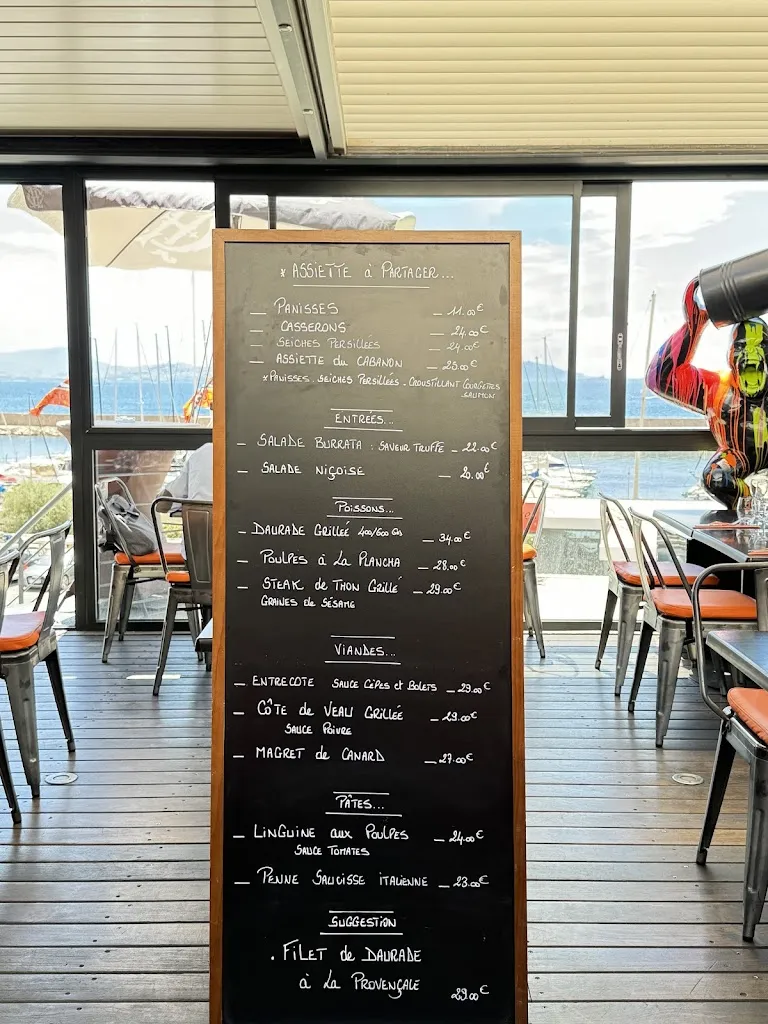 * ASSIETTE à PARTAGER...
— PANISSES — 11.00€
— CASSERONS — 24.00€
— SEICHES PERSILLEES — 24.00€
— ASSIETTE du CABANON — 25.00€
*PANISSES. SEICHES PERSILLEES. CROUSTILLANT COURGETTES
SAUMON
ENTREES...
— SALADE BURRATA : SAVEUR TRUFFE — 22.00€
— SALADE NIÇOISE — 20.00€
POISSONS...
— DAURADE GRILLEÉ 400/600 GR — 34.00€
— POULPES à LA PLANCHA — 28.00€
— STEAK de THON GRILLÉ — 29.00€
GRAINES de SÉSAME
VIANDES...
— ENTRECOTE SAUCE CÈPES et BOLETS — 29.00€
— CÔTE de VEAU GRILLÉE — 29.00€
SAUCE POIVRE
— MAGRET de CANARD — 27.00€
PÂTES...
— LINGUINE aux POULPES — 24.00€
SAUCE TOMATES
— PENNE SAUCISSE ITALIENNE — 23.00€
SUGGESTION
. FILET de DAURADE
à La PROVENÇALE 29.00€